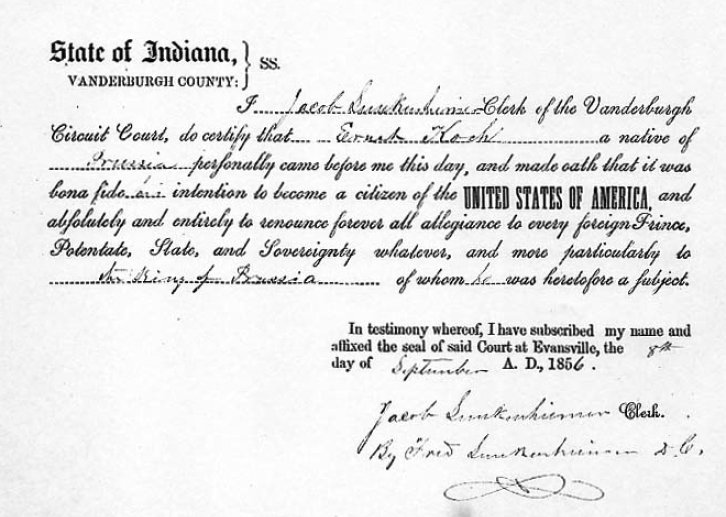 State of Indiana, } SS.
VANDERBURGH COUNTY:
I Jacob Lunkenheimer Clerk of the Vanderburgh
Circuit Court, do certify that Ernst Koch a native of
Prussia perſonally came before me this day, and made oath that it was
bona fide his intention to become a citizen of the UNITED STATES OF AMERICA, and
abſolutely and entirely to renounce forever all allegiance to every foreign Prince,
Potentate, State, and Sovereignty whatever, and more particularly to
the King of Prussia of whom he was heretofore a subject.
In testimony whereof, I have subscribed my name and
affixed the seal of said Court at Evansville, the 8th
day of September A. D., 1856.
Jacob Lunkenheimer Clerk.
By Fred Lunkenheimer D.C.